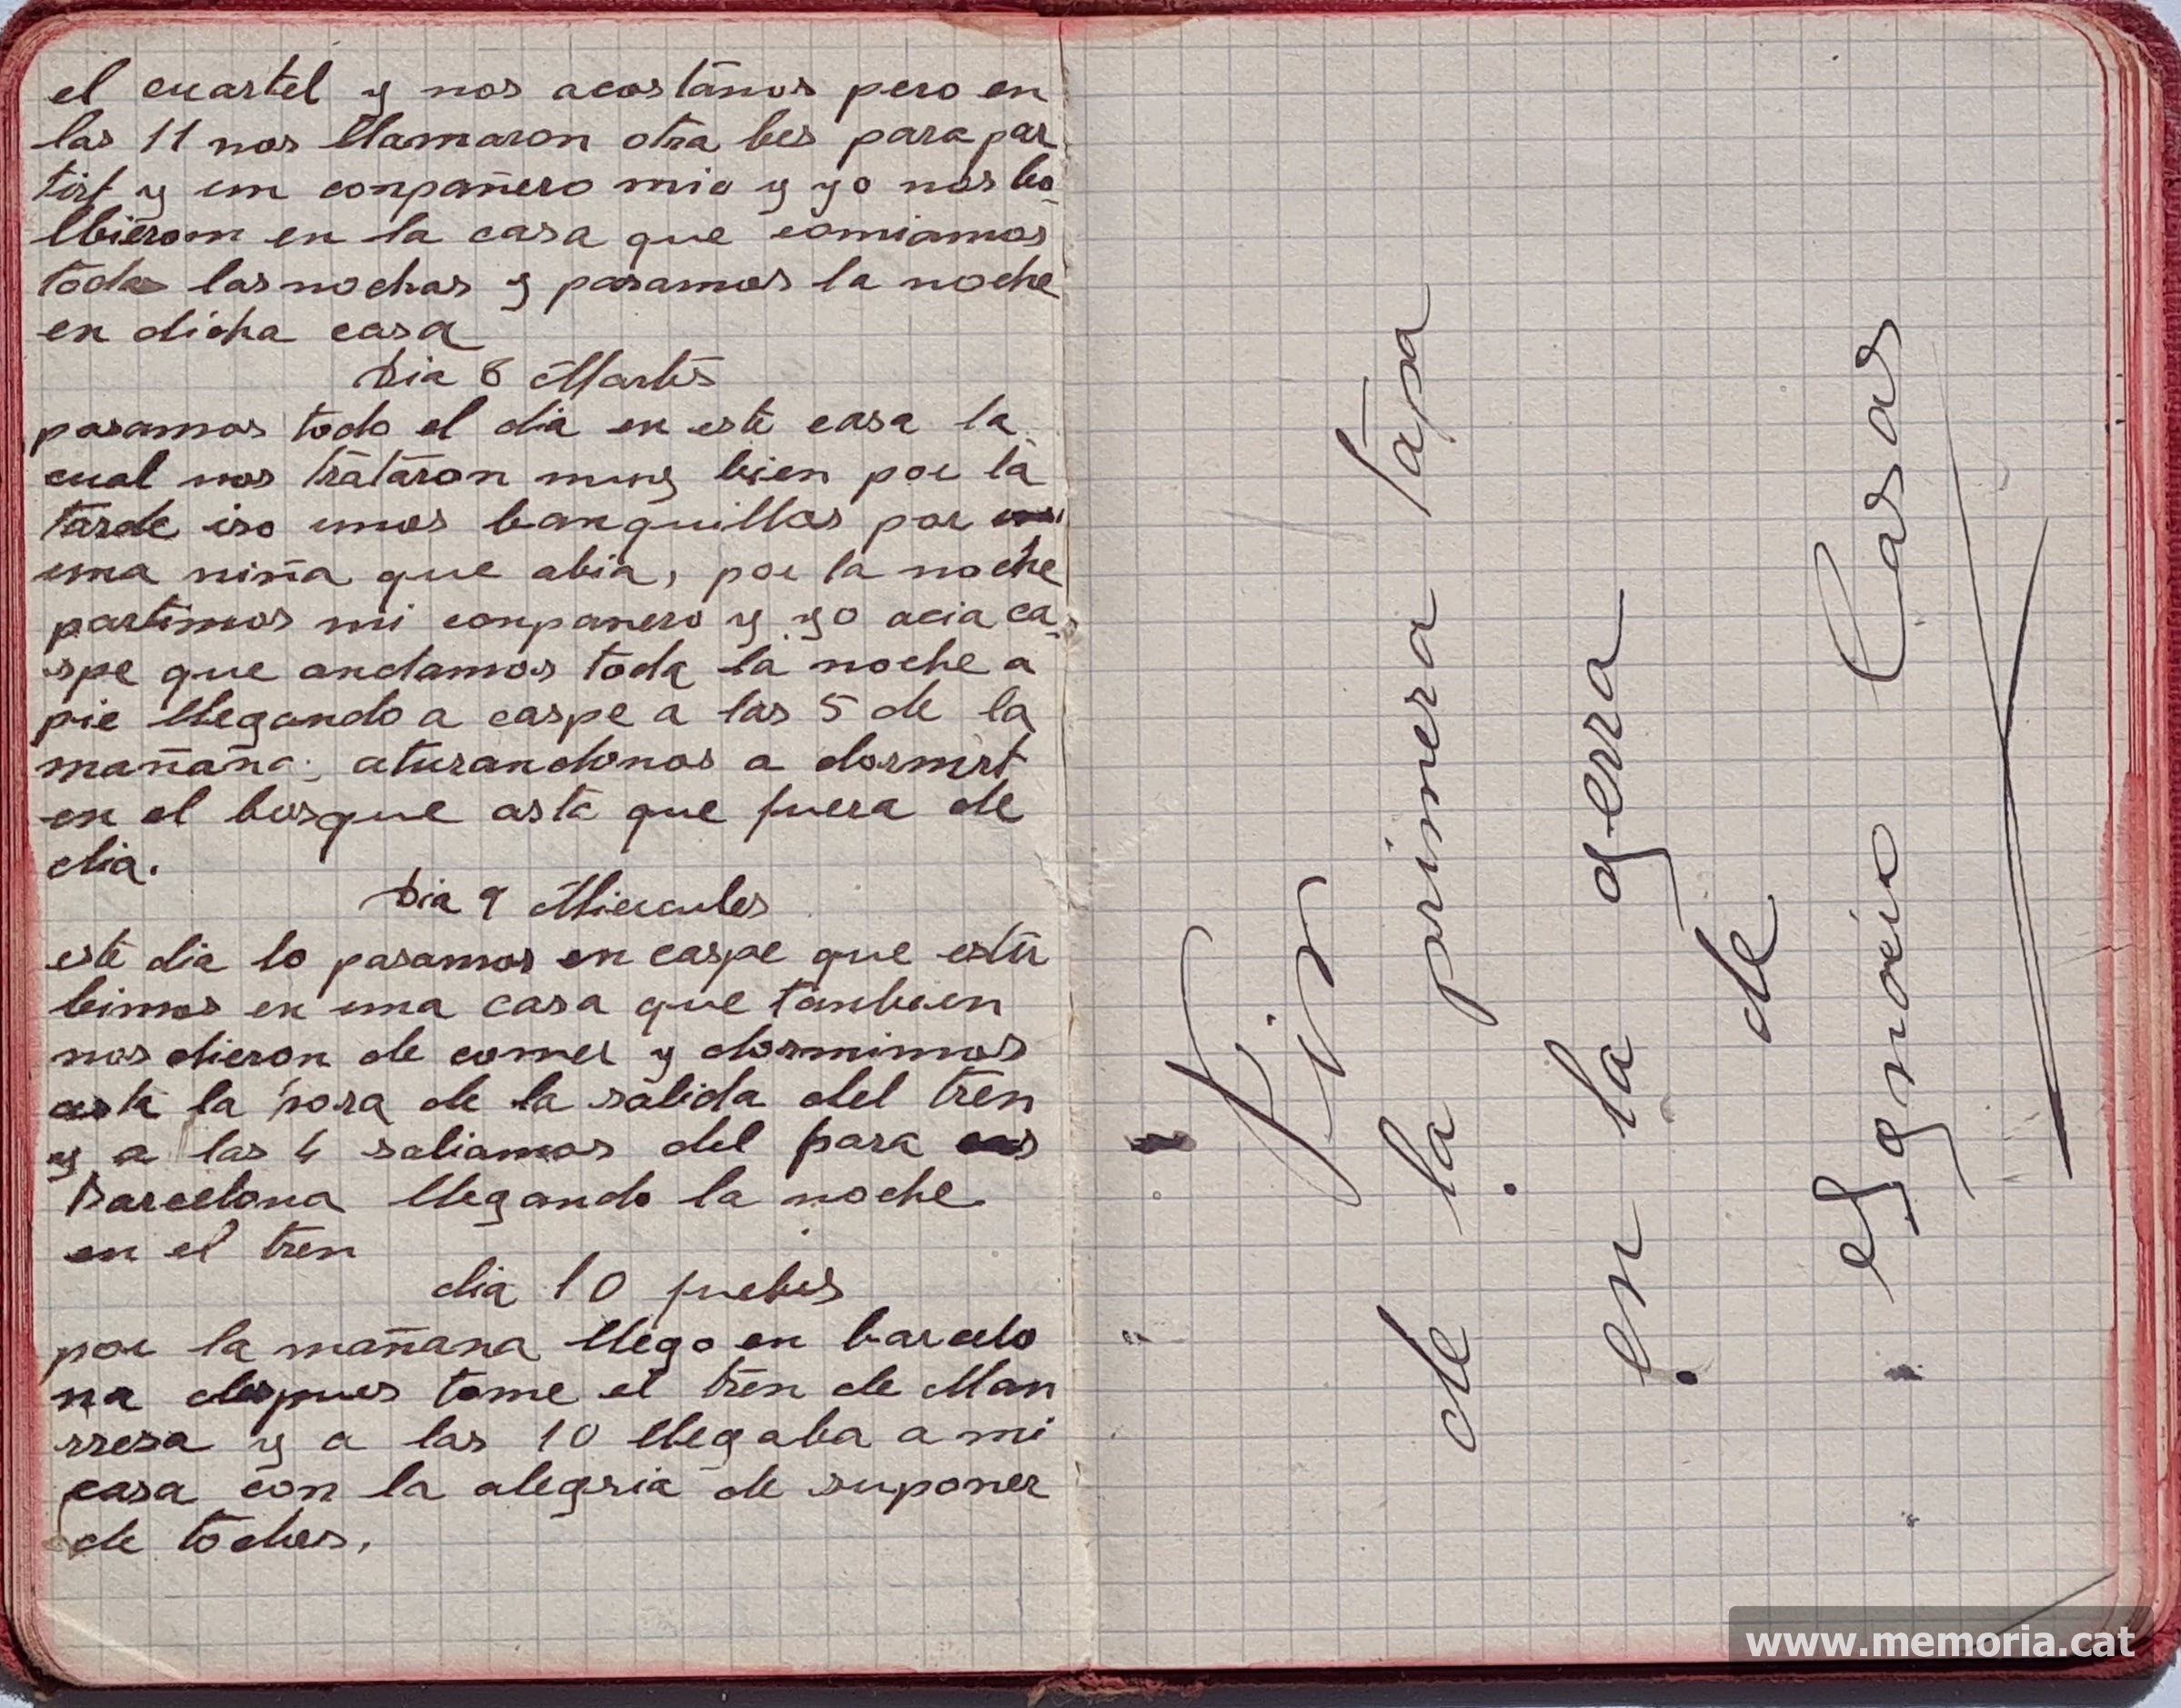 el cuartel y nos acostamos pero en
las 11 nos llamaron otra bes para par
tirt y un conpañero mio y yo nos bo
lbierom en la casa que comiamos
todas las nochas y pasamos la noche
en dicha casa
Dia 8 Martes
pasamos todo el dia en este casa la
cual nos trataron muy bien por la
tarde iso unos banquillos por
una niña que abia, por la noche
partimos mi conpanero y yo acia ca
spe que andamos toda la noche a
pie llegando a caspe a las 5 de la
mañana; aturandonos a dormirt
en el bosque asta que fuera de
dia.
Dia 9 Miercules
este dia lo pasamos en caspe que estu
bimos en una casa que tanbien
nos dieron de comer y dormimos
asta la hora de la salida del tren
y a las 4 saliamos del para
Barcelona llegando la noche
en el tren
dia 10 juebes
por la mañana llego en barcelo
na despues tome el tren de Man
rresa y a las 10 llegaba a mi
casa con la alegria de suponer
de todos.
Fin
de la primera Tapa
en la gerra
de
Egnacio Casas
www.memoria.cat